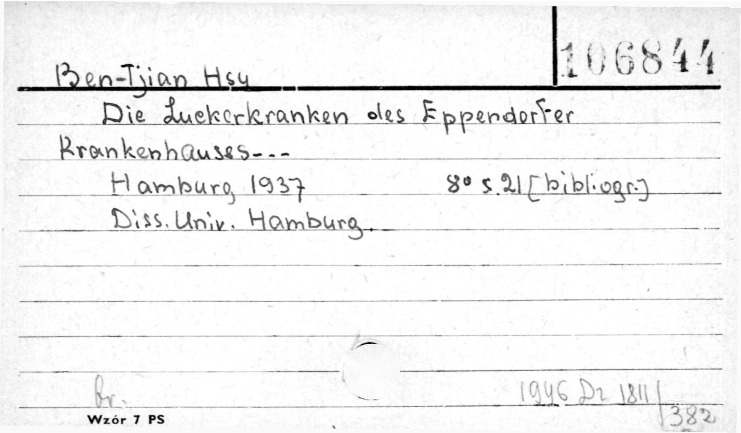 106844
Ben-Tjian Hsy
Die Luckerkranken des Eppendorfer
Krankenhauses---
Hamburg 1937 8° s. 21 [bibliogr.]
Diss. Univ. Hamburg.
br. 1946 Dz 1811/
382
Wzór 7 PS